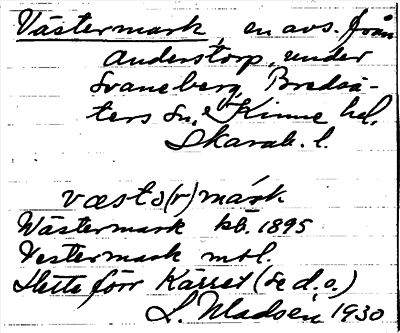 Västermark, en avs. från
Anderstorp, under
Svaneberg, Bredsä-
ters sn, Kinne hd.
Skarab. l.
væstə(r)márk
Wästermark kb. 1895
Vestermark mtl.
Hette förr Kärret (se d.o.)
L. Madsén 1930